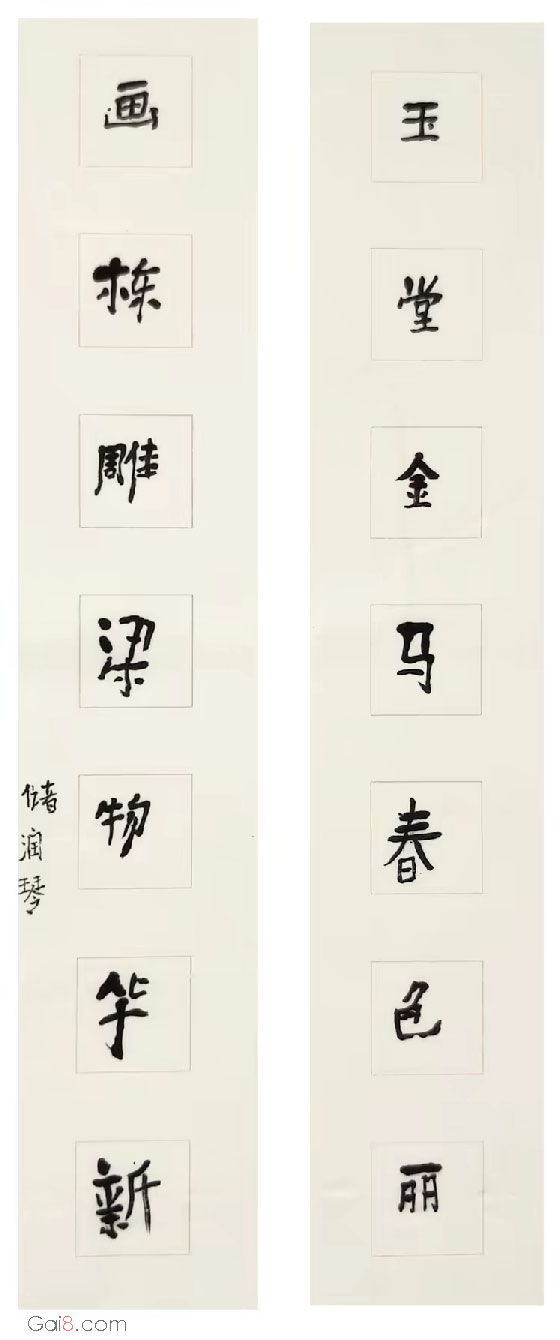 玉堂金马春色丽
画栋雕梁物华新
储润琴
Gai8.com